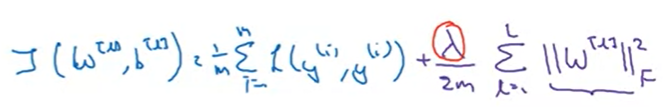 J(w^{[l]}, b^{[l]}) = \frac{1}{m} \sum_{i=1}^{m} L(y^{(i)}, y^{(i)}) + \frac{λ}{2m} \sum_{l=1}^{L} ||w^{[l]}||_F^2